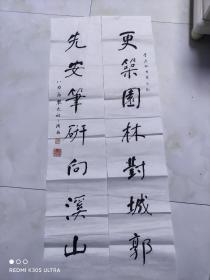 更築園林對城郭
先安筆研向溪山
REDMI K30S ULTRA